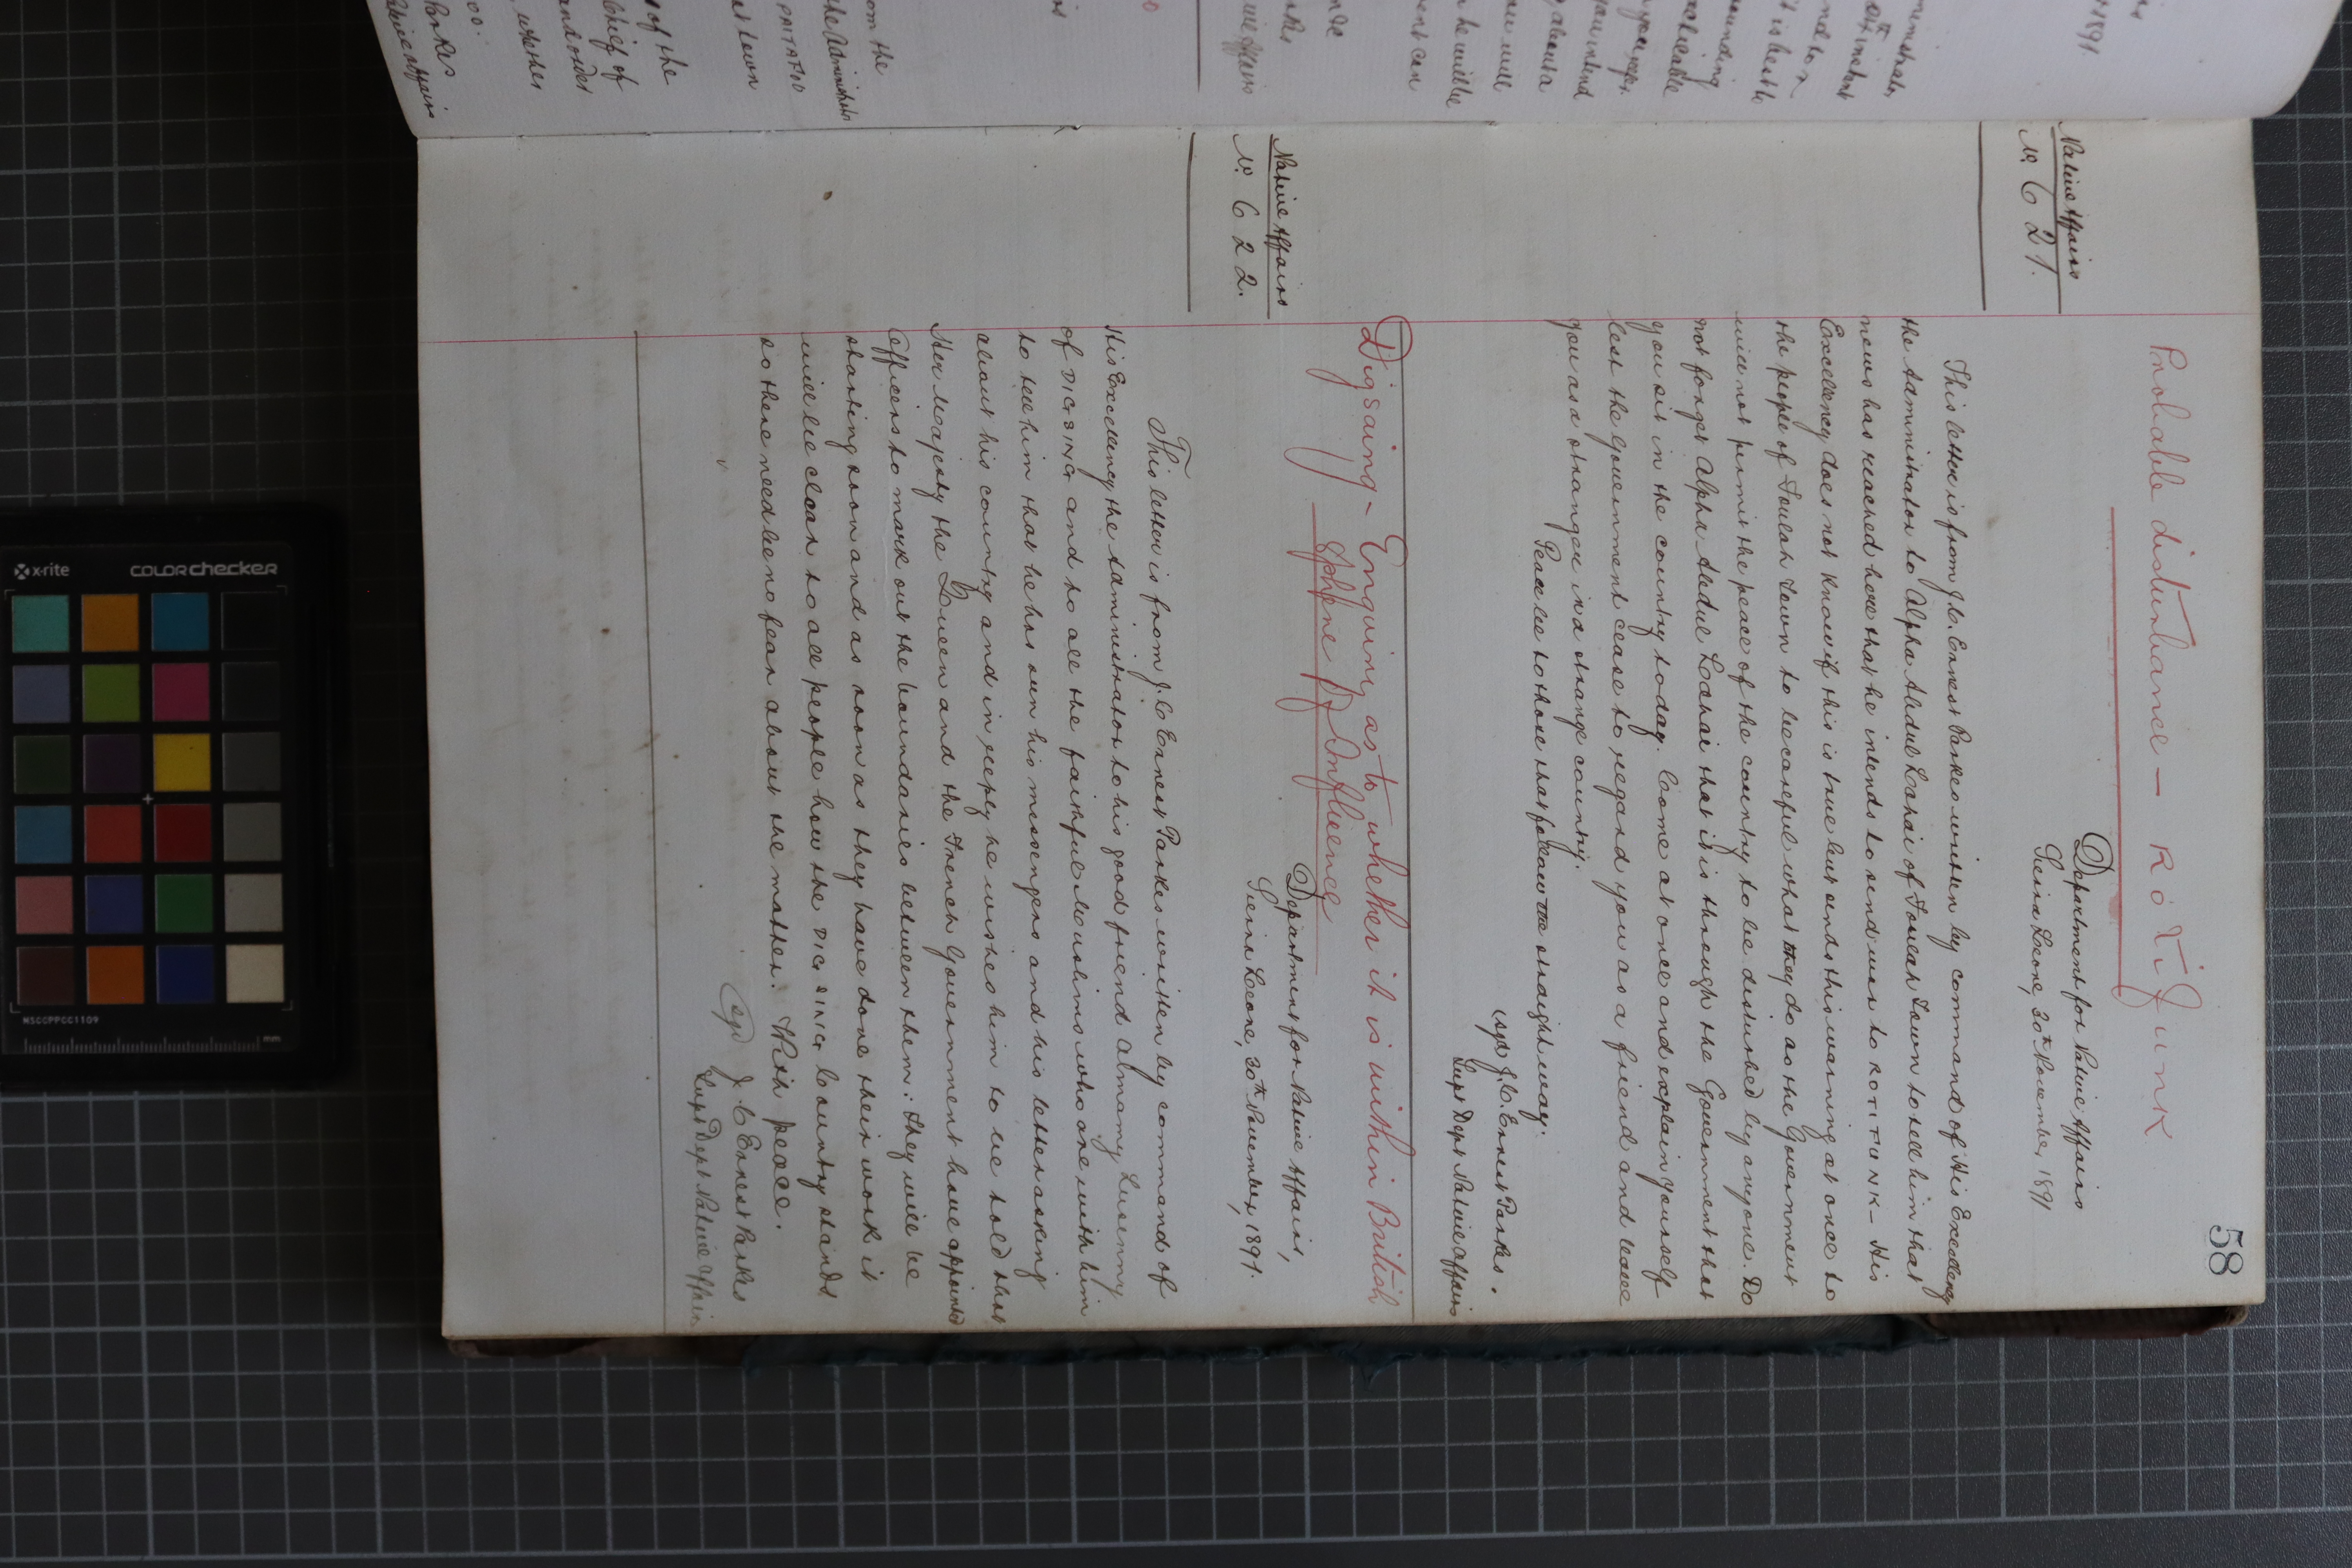 58
Probable disturbance - ROTIFUNK
Native Affairs
No. 621.
Department for Native Affairs
Sierra Leone, 30th November, 1891
This letter is from J.C. Ernest Parkes written by command of His Excellency
the Administrator to Alpha Abdul Lahai of Foulah Town to tell him that
news has reached here that he intends to send war to ROTIFUNK - His
Excellency does not know if this is true but sends this warning at once to
the people of Foulah Town to be careful what they do as the Government
will not permit the peace of the country to be disturbed by anyone. Do
not forget Alpha Abdul Lahai that it is through the Government that
you sit in the country today. Come at once and explain yourself
lest the Government cease to regard you as a friend and leave
you as a stranger in a strange country.
Peace be to those that follow the straight way.
(sgd) J.C. Ernest Parkes.
Supt Dept Native Affairs
Digsaing - Enquiry as to whether it is within British
Sphere of Influence
Native Affairs
No. 622.
Department for Native Affairs,
Sierra Leone, 30th November, 1891.
This letter is from J.C Ernest Parkes written by command of
His Excellency the Administrator to his good friend Almamy Lusenny
of DIGSING and to all the faithful Muslims who are with him
to tell him that he has seen his messengers and his letter asking
about his country and in reply he wishes him to be told that
Her Majesty the Queen and the French Government have appointed
Officers to mark out the boundaries between them: they will be
starting soon and as soon as they have done their work it
will be clear to all people how the DIGSING Country stands
so there need be no fear about the matter. With peace.
(sgd) J.C Ernest Parkes
Supt Dept Native Affairs
x-rite
COLORchecker
MSCCPPCC1109
mm